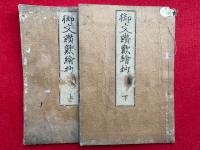 御文讃歎繪抄 下
御文讃歎繪抄 上